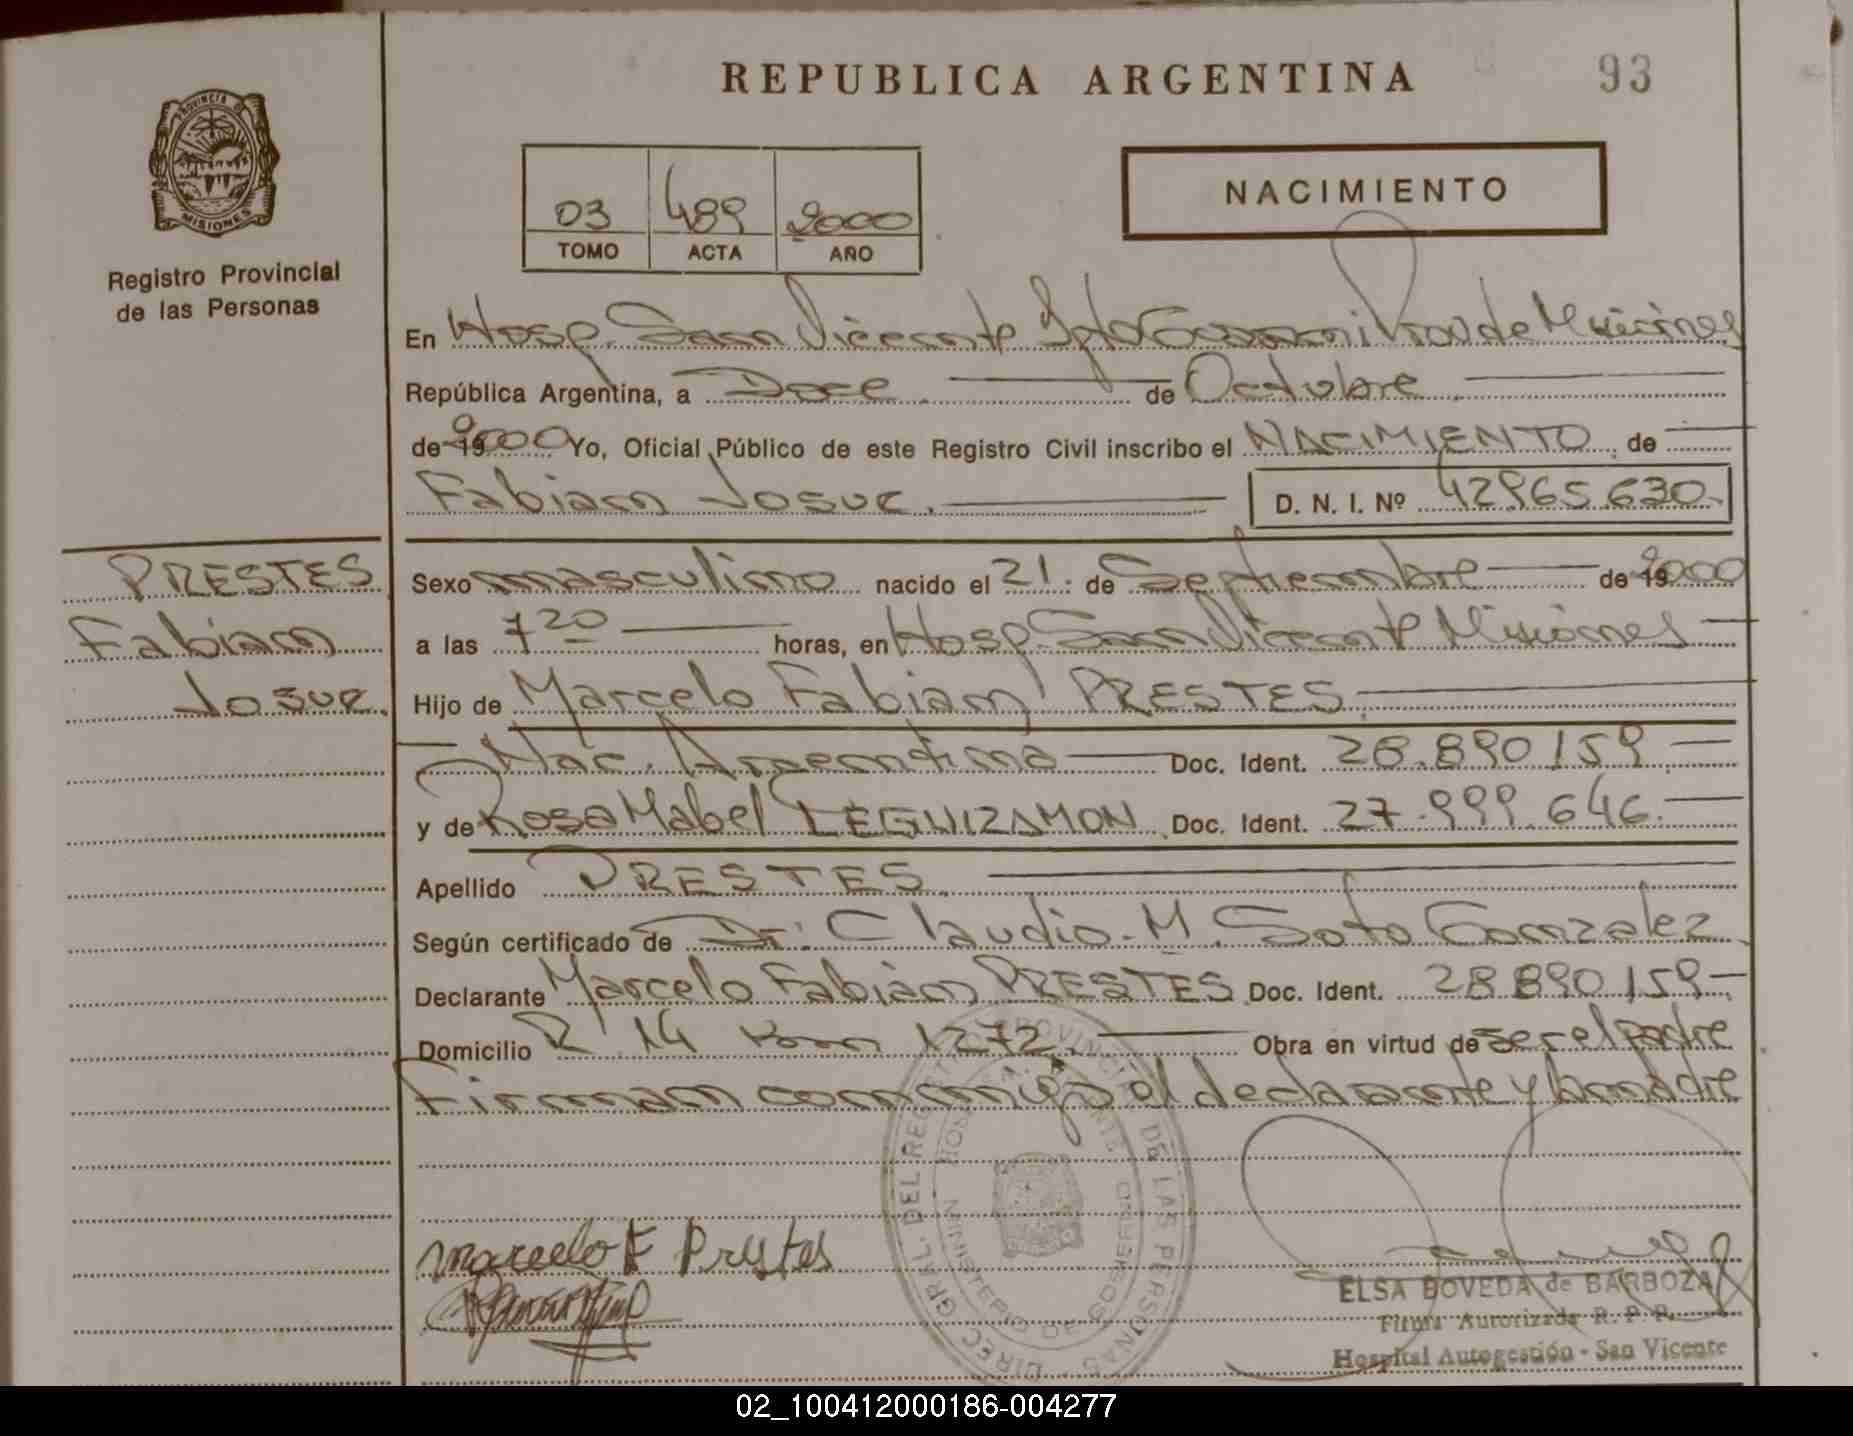 REPUBLICA ARGENTINA
93
PROVINCIA D
MISIONES
Registro Provincial
de las Personas
03 489 2000
TOMO ACTA AÑO
NACIMIENTO
En Hosp. San Vicente Dpto Guarani Prov de Misiones
República Argentina, a Doce de Octubre
de 19 2000 Yo, Oficial Público de este Registro Civil inscribo el NACIMIENTO de
Fabian Josue. D. N. I. Nº 42965.630.
PRESTES
Fabian
Josue.
Sexo masculino nacido el 21 de Septiembre de 19 2000
a las 7 20 horas, en Hosp. San Vicente Misiones
Hijo de Marcelo Fabian PRESTES
Nac. Argentina Doc. Ident. 28.890.159
y de Rosa Mabel LEGUIZAMON Doc. Ident. 27.999.646.
Apellido PRESTES
Según certificado de Dr. Claudio M. Soto Gonzalez
Declarante Marcelo Fabian PRESTES Doc. Ident. 28.890.159
Domicilio R. 14 Km 1272. Obra en virtud de ser el padre
Firman conmigo el declarante y la madre
DIREC. GRAL. DEL REG PROVINCI DE LAS PERSONAS
MINISTERIO DE GOBIERNO
Marcelo F Prestes
ELSA BOVEDA de BARBOZA
Firma Autorizada R. P. P.
Hospital Autogestión - San Vicente
02_100412000186-004277